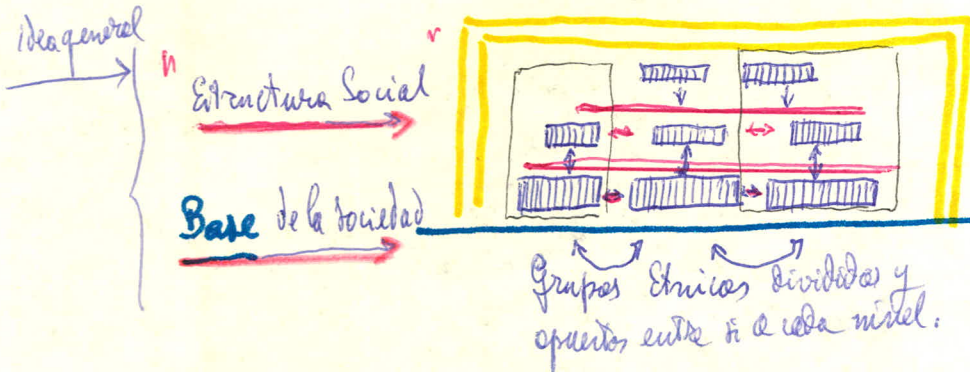 idea general
Estructura Social
Base de la sociedad
Grupos Etnicos divididos y
opuestos entre si a cada nivel.